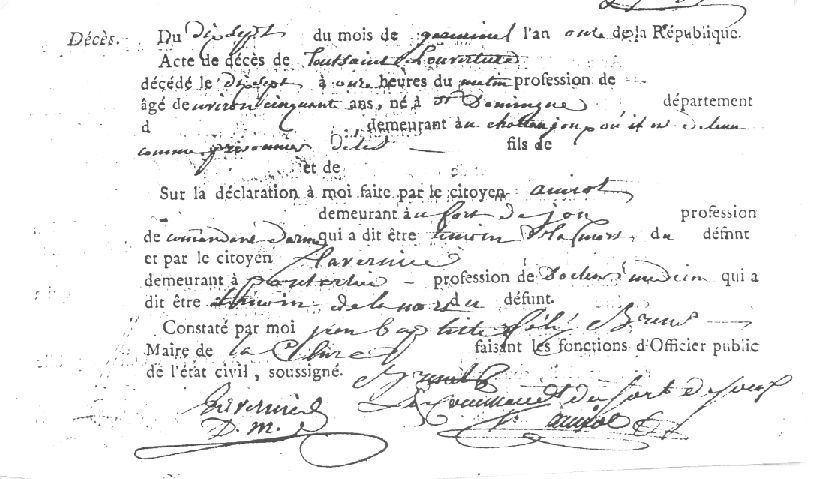 Décès. Du dix sept du mois de germinal l'an onze de la République.
Acte de décès de Toussaint Louverture
décédé le dix sept à onze heures du matin profession de
âgé de environ cinquant ans, né à St Domingue département
d , demeurant au chateau joux où il est detenu
comme prisonnier fils de
et de
Sur la déclaration à moi faite par le citoyen amiot
demeurant à au fort de jou profession
de comandant darme qui a dit être temoin du défunt
et par le citoyen
demeurant à pontarlier profession de Docteur médecin qui a
dit être temoin de la mors du défunt.
Constaté par moi jean baptiste
Maire de la Cluse faisant les fonctions d'Officier public
de l'état civil, soussigné.
Le Commandant du fort de joux
D. m. amiot